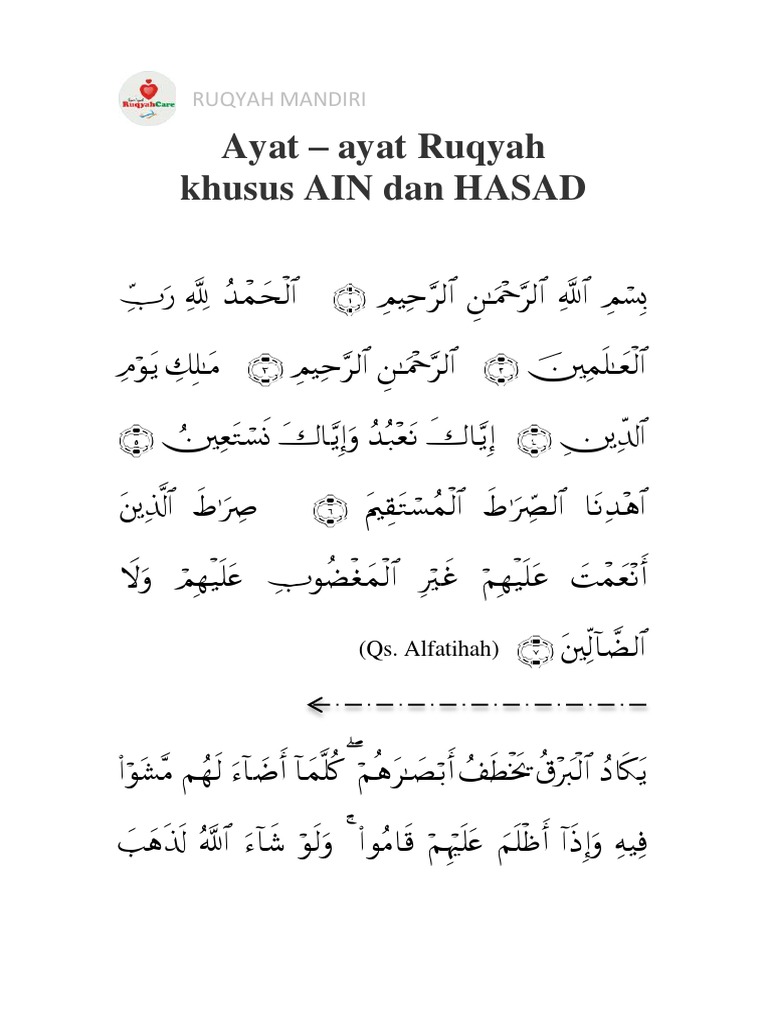 RuqyahCare
RUQYAH MANDIRI
Ayat – ayat Ruqyah
khusus AIN dan HASAD
بِسۡمِ ٱللَّهِ ٱلرَّحۡمَٰنِ ٱلرَّحِيمِ ۝١ ٱلۡحَمۡدُ لِلَّهِ رَبِّ
ٱلۡعَٰلَمِينَ ۝٢ ٱلرَّحۡمَٰنِ ٱلرَّحِيمِ ۝٣ مَٰلِكِ يَوۡمِ
ٱلدِّينِ ۝٤ إِيَّاكَ نَعۡبُدُ وَإِيَّاكَ نَسۡتَعِينُ ۝٥
ٱهۡدِنَا ٱلصِّرَٰطَ ٱلۡمُسۡتَقِيمَ ۝٦ صِرَٰطَ ٱلَّذِينَ
أَنۡعَمۡتَ عَلَيۡهِمۡ غَيۡرِ ٱلۡمَغۡضُوبِ عَلَيۡهِمۡ وَلَا
ٱلضَّآلِّينَ ۝٧ (Qs. Alfatihah)
يَكَادُ ٱلۡبَرۡقُ يَخۡطَفُ أَبۡصَٰرَهُمۡۖ كُلَّمَآ أَضَآءَ لَهُم مَّشَوۡاْ
فِيهِ وَإِذَآ أَظۡلَمَ عَلَيۡهِمۡ قَامُواْۚ وَلَوۡ شَآءَ ٱللَّهُ لَذَهَبَ